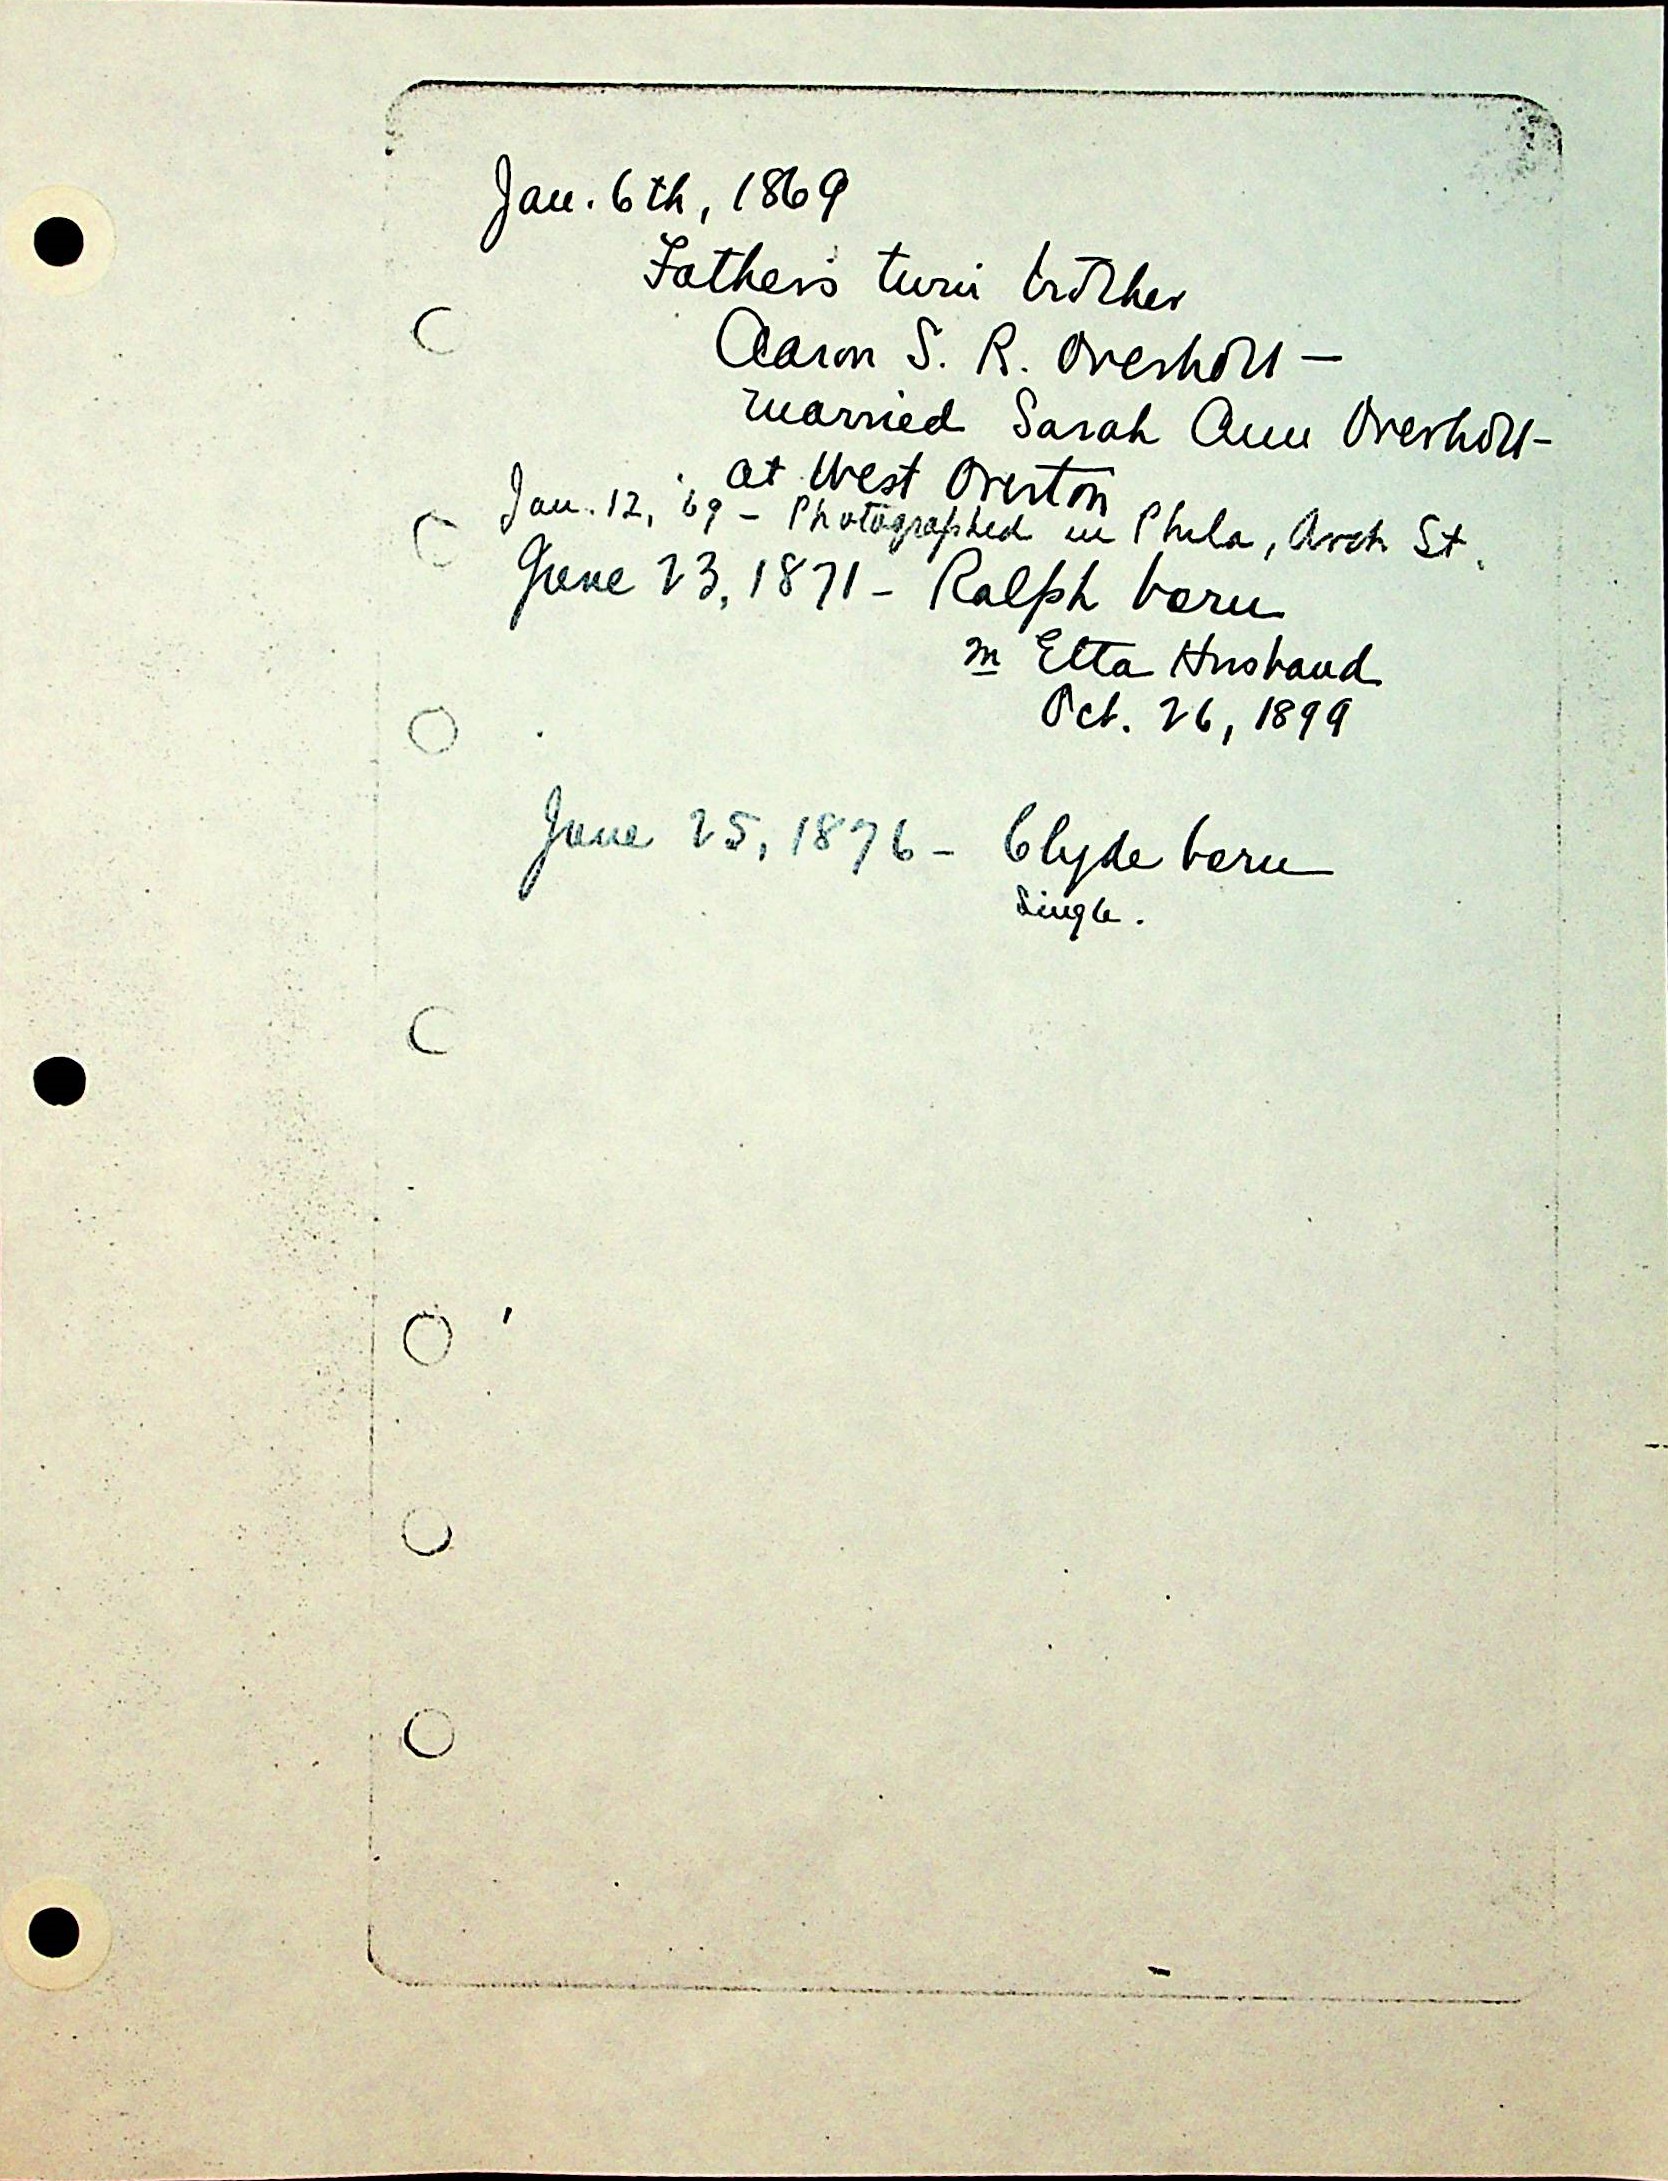 Jan. 6th, 1869
Father's twin brother
Aaron S. R. Overholt —
married Sarah Ann Overholt -
at West Overton
Jan. 12, '69 - Photographed in Phila, Arch St.
June 23, 1871 - Ralph born
m Etta Husband
Oct. 26, 1899
June 25, 1876 - Clyde born
Single.